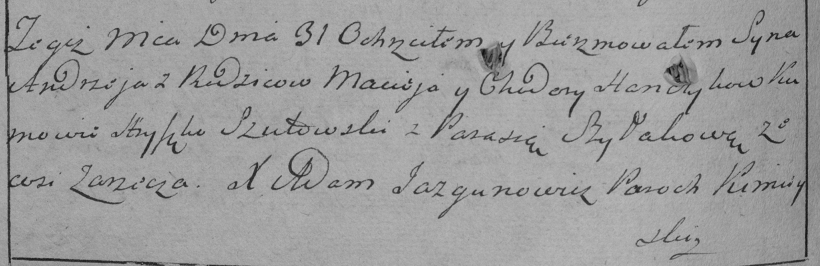 Tegoż Mca Dnia 31 Ochrzciłem y Bierzmowałem Syna
Andrzeja z Rodzicow Macieja y Chodory Hanczykow Ku
mowie Hryszko Szutowski z Parasią z
wsi Zarzecza. X Adam Jazgunowicz Paroch Kimiey
ski